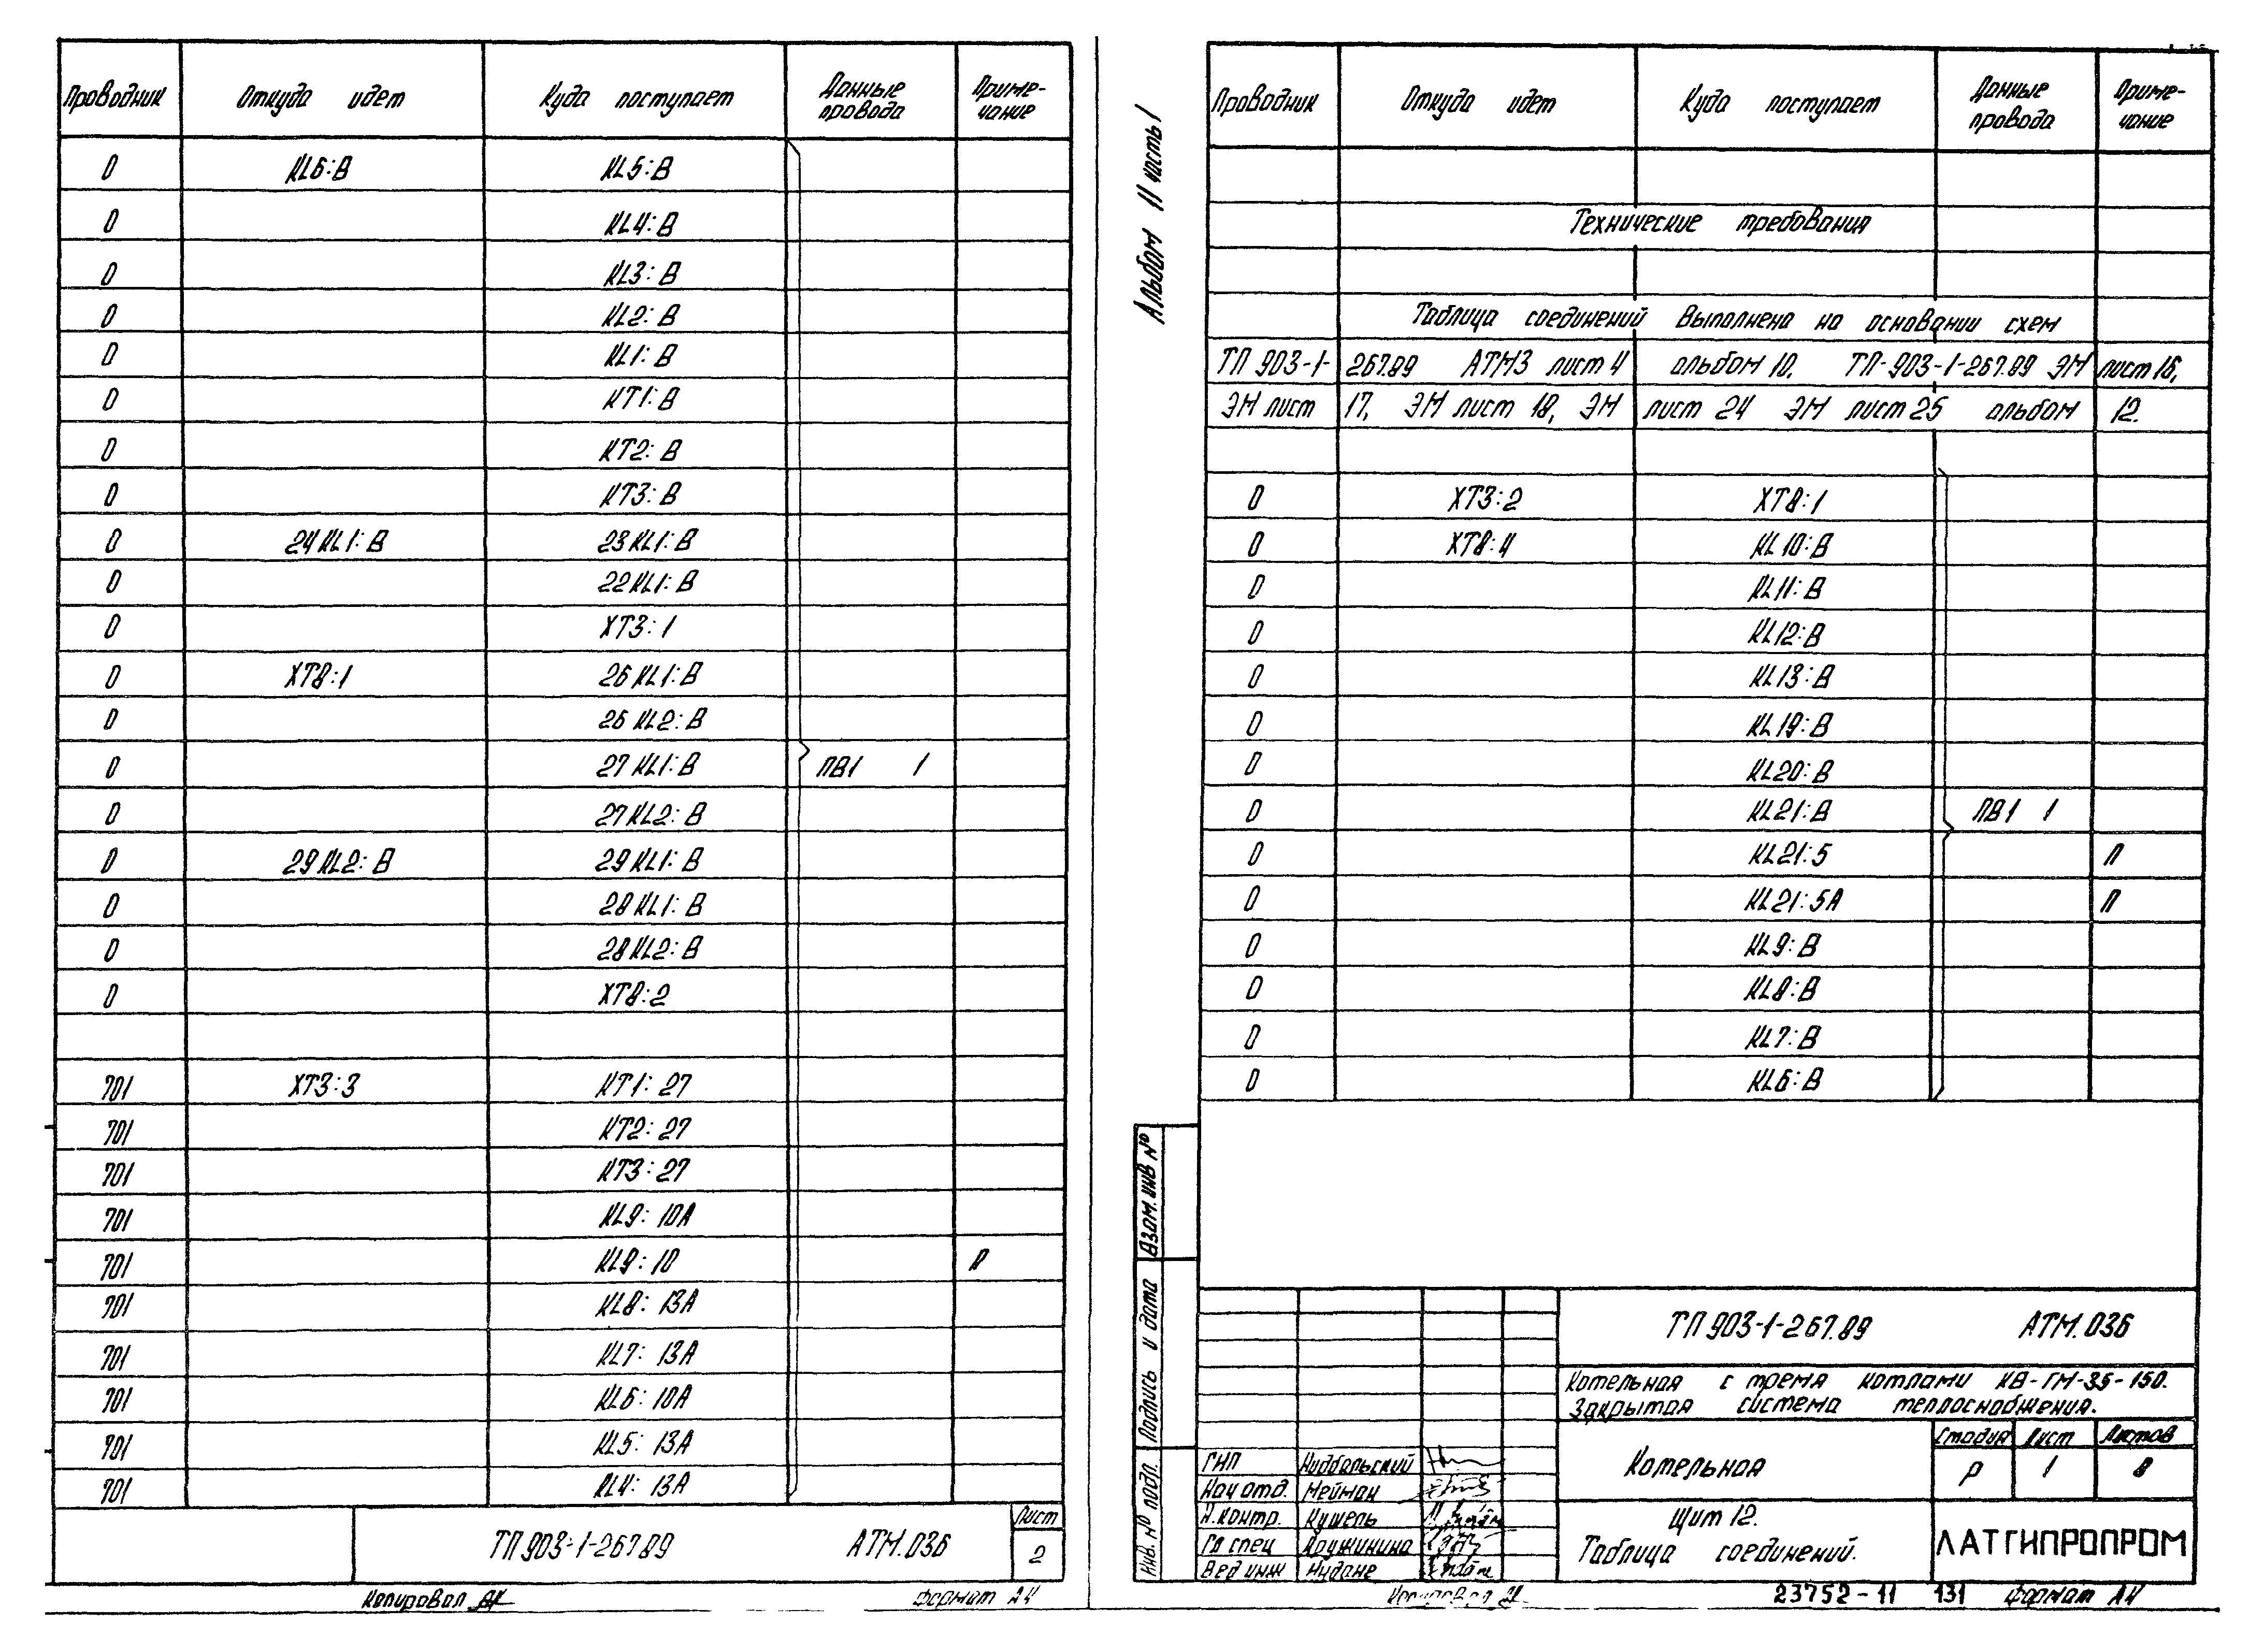 Проводник Откуда идет Куда поступает Данные провода Приме-чание
0 KL6:В KL5:В
0 KL4:В
0 KL3:В
0 KL2:В
0 KL1:В
0 КТ1:В
0 КТ2:В
0 КТ3:В
0 24KL1:В 23KL1:В
0 22KL1:В
0 ХТ3:1
0 ХТ8:1 26KL1:В
0 26KL2:В
0 27KL1:В ПВ1 1
0 27KL2:В
0 29KL2:В 29KL1:В
0 28KL1:В
0 28KL2:В
0 ХТ8:2
701 ХТ3:3 КТ1:27
701 КТ2:27
701 КТ3:27
701 KL9:10А
701 KL9:10 П
701 KL8:13А
701 KL7:13А
701 KL6:10А
701 KL5:13А
701 KL4:13А
ТП903-1-267.89 АТМ.036 Лист 2
Копировал Формат А4
Альбом 11 часть 1
Проводник Откуда идет Куда поступает Данные провода Приме-чание
Технические требования
Таблица соединений выполнена на основании схем
ТП 903-1-267.89 АТМ3 лист 4 альбом 10, ТП-903-1-267.89 ЭМ лист 16,
ЭМ лист 17, ЭМ лист 18, ЭМ лист 24 ЭМ лист 25 альбом 12.
0 ХТ3:2 ХТ8:1
0 ХТ8:4 KL10:В
0 KL11:В
0 KL12:В
0 KL13:В
0 KL19:В
0 KL20:В
0 KL21:В ПВ1 1
0 KL21:5 П
0 KL21:5А П
0 KL9:В
0 KL8:В
0 KL7:В
0 KL6:В
Взам. инв №
Подпись и дата
Инв. № подл.
ТП903-1-267.89 АТМ.036
Котельная с тремя котлами КВ-ГМ-35-150.
Закрытая система теплоснабжения.
Котельная
Стадия Лист Листов
Р 1 8
ГИП
Нач отд. Мейман
Н.контр. Кушель
Гл спец Аружинина
Вед инж
Щит 12.
Таблица соединений.
ЛАТГИПРОПРОМ
Копировал 23752-11 131 Формат А4